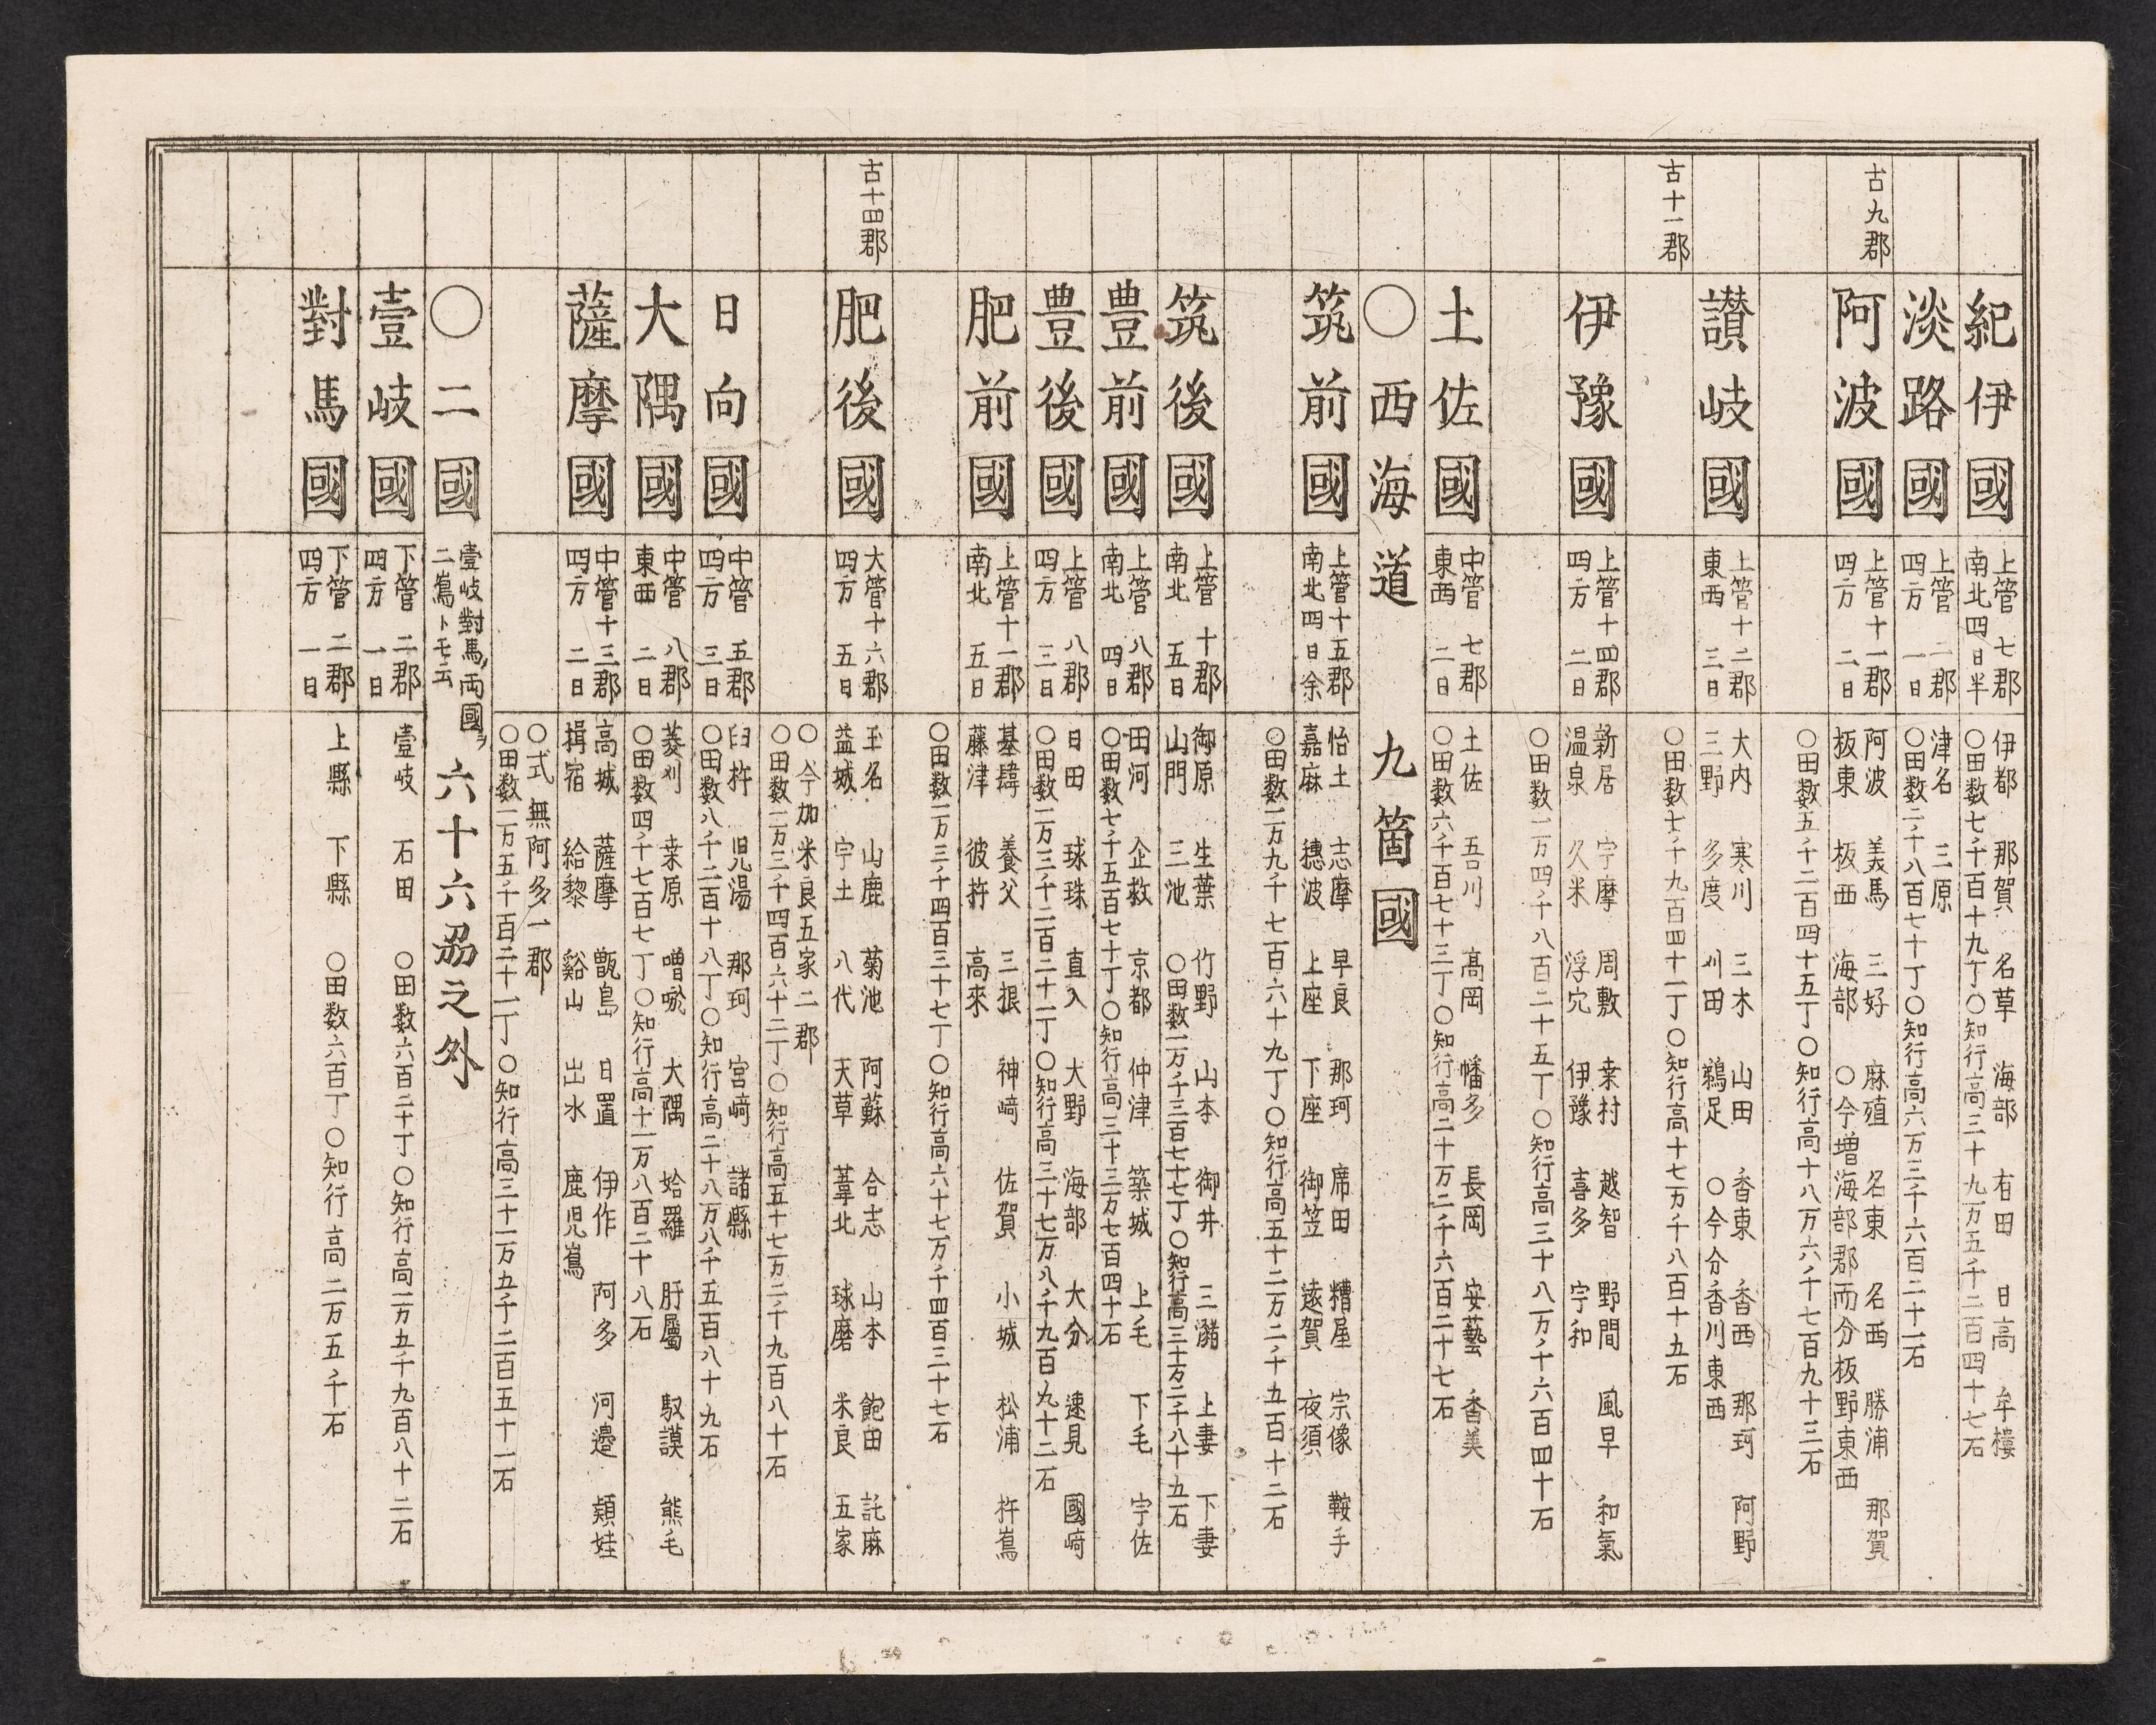 紀伊國
上管 七郡
南北四日半
伊都 那賀 名草 海部 有田 日高 牟樓
〇田数七千百十九丁〇知行高三十九万五千二百四十七石
淡路國
上管 二郡
四方 一日
津名 三原
〇田数二千八百七十丁〇知行高六万三千六百二十一石
古九郡
阿波國
上管十一郡
四方 二日
阿波 美馬 三好 麻殖 名東 名西 勝浦 那賀
板東 板西 海部 〇今増海部郡而分板野東西
〇田数五千二百四十五丁〇知行高十八万六千七百九十三石
讃岐國
上管十二郡
東西 三日
大内 寒川 三木 山田 香東 香西 那珂 阿野
三野 多度 刈田 鵜足 〇今分香川東西
古十一郡
〇田数七千九百四十一丁〇知行高十七万千八百十九石
伊豫國
上管十四郡
四方 二日
新居 宇摩 周敷 桒村 越智 野間 風早 和氣
温泉 久米 浮穴 伊豫 喜多 宇和
〇田数一万四千八百二十五丁〇知行高三十八万千六百四十石
土佐國
中管 七郡
東西 二日
土佐 吾川 髙岡 幡多 長岡 安藝 香美
〇田数六千百七十三丁〇知行高二十万二千六百二十七石
〇西海道 九箇國
筑前國
上管十五郡
南北四日余
怡土 志摩 早良 那珂 席田 糟屋 宗像 鞍手
嘉麻 穂波 上座 下座 御笠 遠賀 夜須
〇田数一万九千七百六十九丁〇知行高五十二万二千五百十二石
筑後國
上管 十郡
南北 五日
御原 生葉 竹野 山本 御井 三瀦 上妻 下妻
山門 三池 〇田数一万千三百七十七丁〇知行高三十万二千八十九石
豊前國
上管 八郡
南北 四日
田河 企救 京都 仲津 築城 上毛 下毛 宇佐
〇田数七千五百七十丁〇知行高三十三万七百四十石
豊後國
上管 八郡
四方 三日
日田 球珠 直入 大野 海部 大分 速見 國﨑
〇田数一万三千二百二十一丁〇知行高三十七万八千九百九十二石
肥前國
上管十一郡
南北 五日
基肄 養父 三根 神﨑 佐賀 小城 松浦 杵嶌
藤津 彼杵 高來
〇田数一万三千四百三十七丁〇知行高六十七万千四百三十七石
古十四郡
肥後國
大管十六郡
四方 五日
玉名 山鹿 菊池 阿蘇 合志 山本 飽田 託麻
益城 宇土 八代 天草 葦北 球磨 米良 五家
〇今加米良五家二郡
〇田数二万三千四百六十二丁〇知行高五十七万二千九百八十石
日向國
中管 五郡
四方 三日
臼杵 児湯 那珂 宮﨑 諸縣
〇田数八千二百十八丁〇知行高二十八万八千五百八十九石
大隅國
中管 八郡
東西 二日
菱刈 桒原 噌唹 大隅 姶羅 肝屬 馭謨 熊毛
〇田数四千七百七丁〇知行高十一万八百二十八石
薩摩國
中管十三郡
四方 二日
高城 薩摩 甑島 日置 伊作 阿多 河邊 穎娃
揖宿 給黎 谿山 出水 鹿児嶌
〇式無阿多一郡
〇田数一万五千百二十一丁〇知行高三十一万五千二百五十一石
〇二國
壹岐對馬ノ両國ヲ
二嶌トモ云
六十六刕之外
壹岐國
下管 二郡
四方 一日
壹岐 石田 〇田数六百二十丁〇知行高一万五千九百八十二石
對馬國
下管 二郡
四方 一日
上縣 下縣 〇田数六百丁〇知行高二万五千石